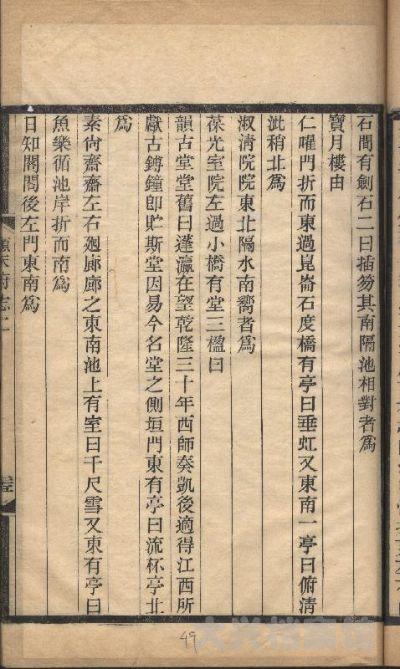 石間有劍石二曰插笏其南隔池相對者爲
寶月樓由
仁曜門折而東過崑崙石度橋有亭曰垂虹又東南一亭曰俯清
泚稍北爲
淑清院院東北隔水南嚮者爲
葆光室院左過小橋有堂三楹曰
韻古堂堂舊曰蓬瀛在望乾隆三十年西師奏凱後適得江西所
獻古鎛鐘卽貯斯堂因易今名堂之側垣門東有亭曰流杯亭北
爲
素尙齋齋左右廻廊廊之東南池上有室曰千尺雪又東有亭曰
魚樂循池岸折而南爲
日知閣閣後左門東南爲
順天府志二
49